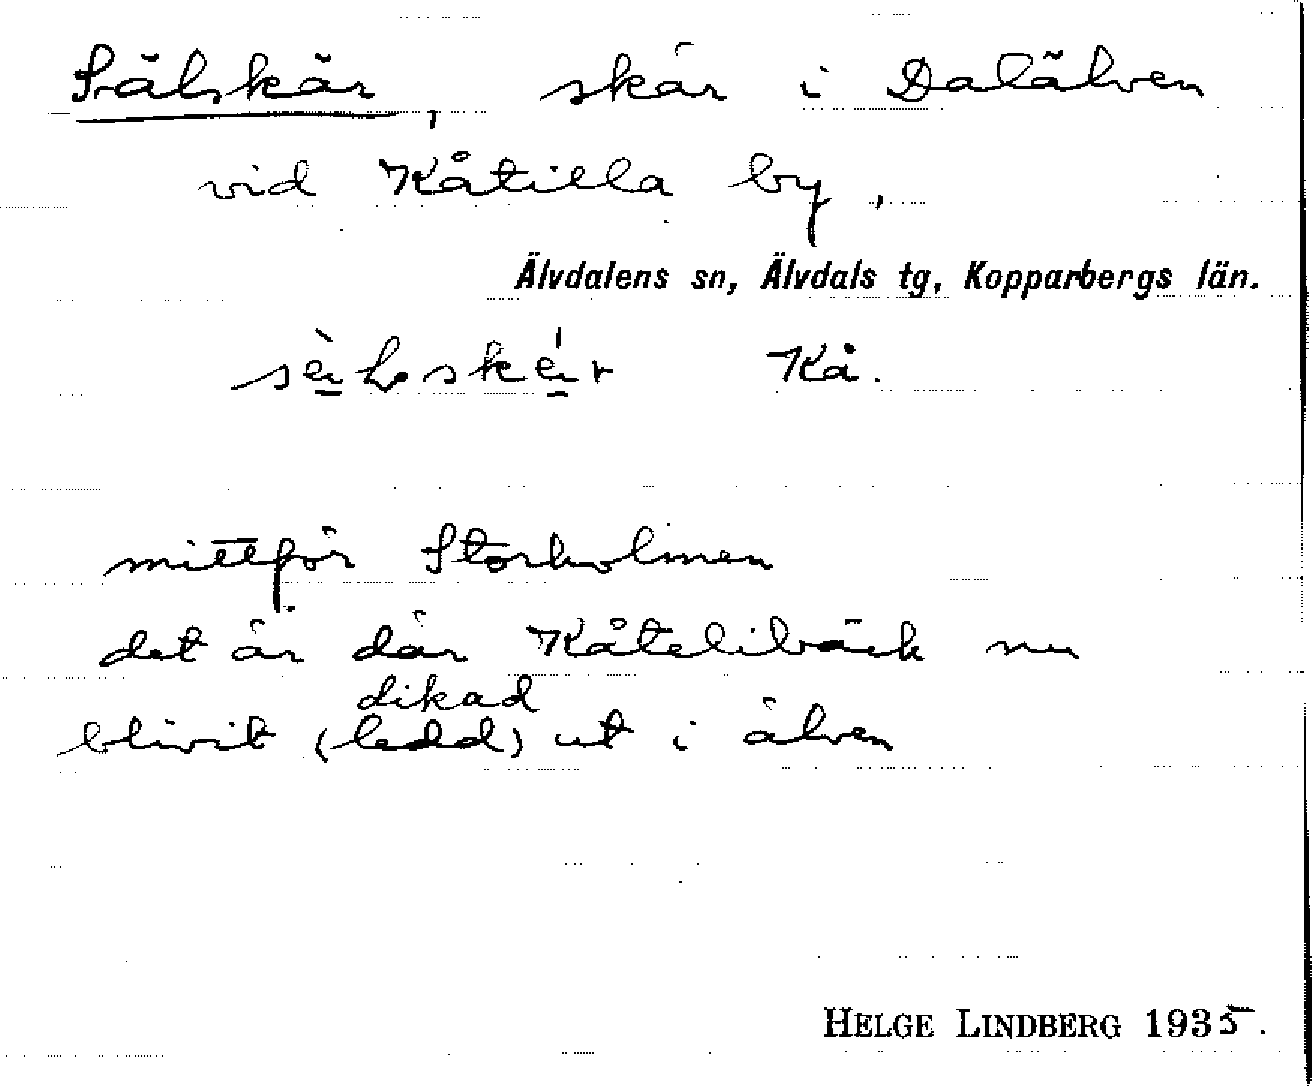 Sälskär, skär i Dalälven
vid Kåtilla by,
Älvdalens sn, Älvdals tg, Kopparbergs län.
Kå.
mittför Storholmen
det är där Kåtelibäck nu
dikad
blivit (ledd) ut i älven
HELGE LINDBERG 1935.